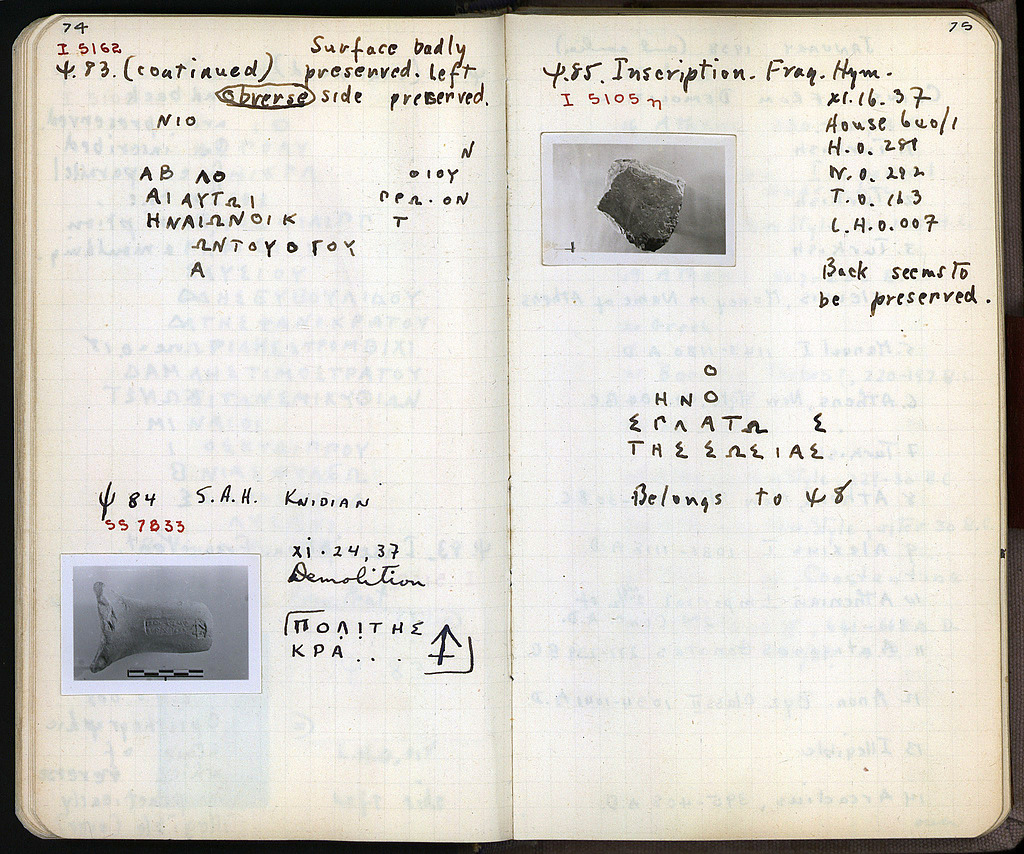 74
I 5162
Ψ.83. (continued) Surface badly
preserved. left
obverse side preserved.
ΝΙΟ
Ν
ΑΒ ΛΟ ΟΙΟΥ
ΑΙΑΥΤΩΙ ΠΕΩ.ΟΝ
ΗΝΑΙΩΝΟΙΚ Τ
ΩΝΤΟΥΟΓΟΥ
Α
Ψ 84 S.A.H. KNIDIAN
SS 7833
xi.24,37
Demolition
ΠΟΛΙΤΗΣ
ΚΡΑ . . .
75
Ψ.85. Inscription. Frag. Hym.
I 5105 η
xi.16.37
House 640/1
H.O. 281
W.O. 292
T. 0.163
L.H.0.007
Back seems to
be preserved.
Ο
ΗΝΟ
ΣΓΛΑΤΩ Σ
ΤΗΣΣΩΣΙΑΣ
Belongs to Ψ8